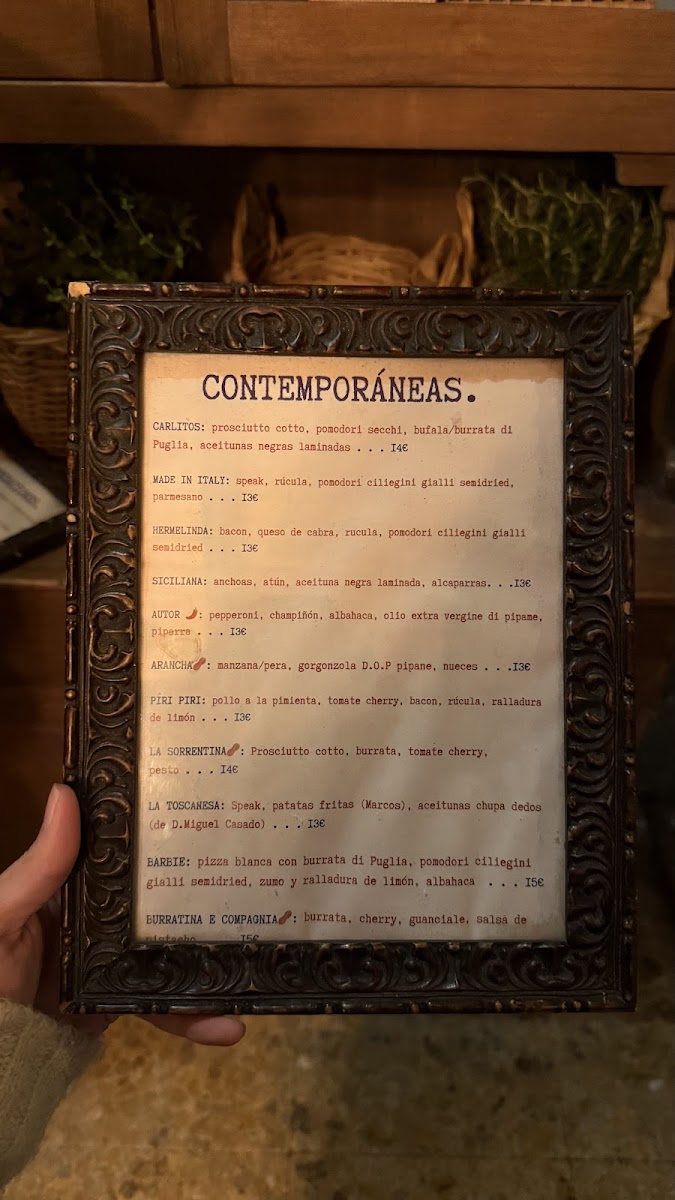 CONTEMPORÁNEAS.
CARLITOS: prosciutto cotto, pomodori secchi, bufala/burrata di
Puglia, aceitunas negras laminadas . . . 14€
MADE IN ITALY: speak, rúcula, pomodori ciliegini gialli semidried,
parmesano . . . 13€
HERMELINDA: bacon, queso de cabra, rucula, pomodori ciliegini gialli
semidried . . . 13€
SICILIANA: anchoas, atún, aceituna negra laminada, alcaparras. . .13€
AUTOR 🌶: pepperoni, champiñón, albahaca, olio extra vergine di pipame,
piparra . . . 13€
ARANCHA🥜: manzana/pera, gorgonzola D.O.P pipane, nueces . . .13€
PIRI PIRI: pollo a la pimienta, tomate cherry, bacon, rúcula, ralladura
de limón . . . 13€
LA SORRENTINA🥜: Prosciutto cotto, burrata, tomate cherry,
pesto . . . 14€
LA TOSCANESA: Speak, patatas fritas (Marcos), aceitunas chupa dedos
(de D.Miguel Casado) . . . 13€
BARBIE: pizza blanca con burrata di Puglia, pomodori ciliegini
gialli semidried, zumo y ralladura de limón, albahaca . . . 15€
BURRATINA E COMPAGNIA🥜: burrata, cherry, guanciale, salsa de
pistacho . . . 15€